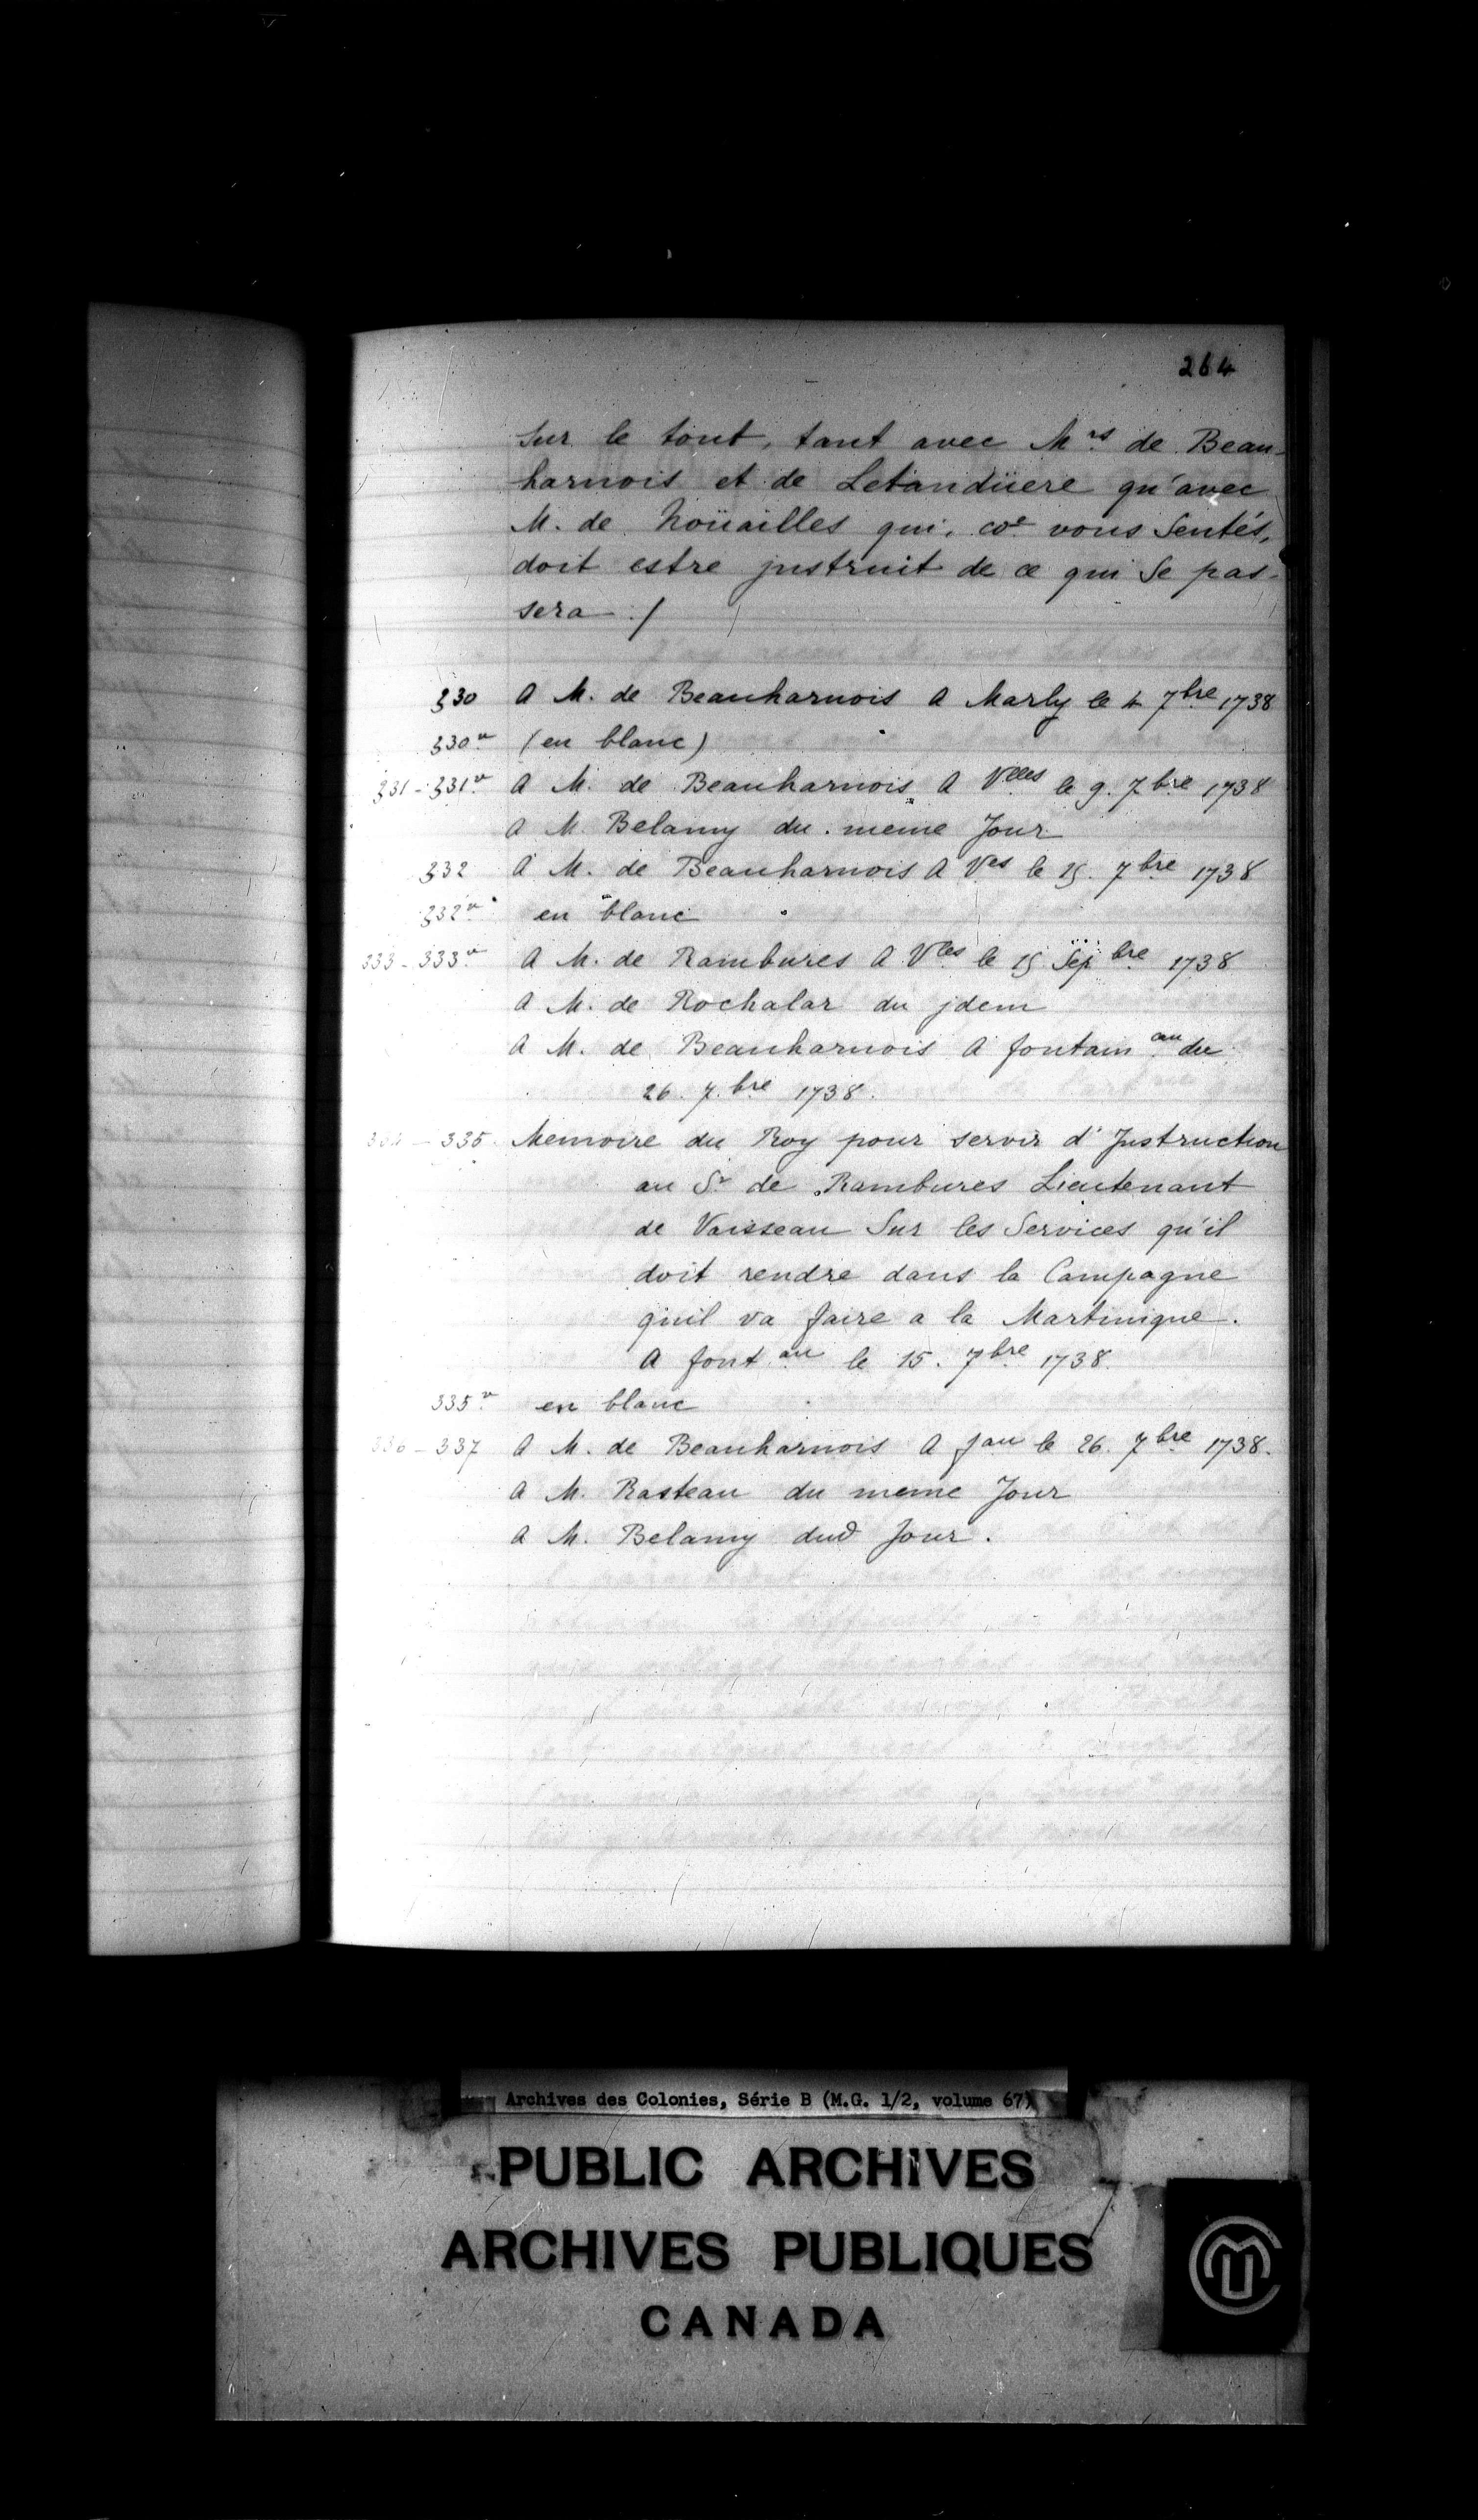 264
Sur le tout, tant avec M.rs de Beau-
harnois et de Letandüere qu'avec
M. de Noüailles qui, coe vous Sentés,
doit estre jnstruit de ce qui Se pas-
sera ./
330 A M. de Beauharnois A Marly le 4 7bre 1738
330v (en blanc)
331 - 331v A M. de Beauharnois A Vlles le 9. 7bre 1738
A M. Belamy du meme Jour
332 A M. de Beauharnois A Ves le 15. 7bre 1738
332v en blanc
333 - 333v A M. de Rambures A Vles le 15 Sepbre 1738
A M. de Rochalar du jdem
A M. de Beauharnois A fontainau du
26. 7.bre 1738.
334 - 335. Memoire du Roy pour servir d'Jnstruction
au Sr de Rambures Lieutenant
de Vaisseau Sur les Services qu'il
doit rendre dans la Campagne
qu'il va faire a la Martinique.
A fontau le 15. 7bre 1738.
335v en blanc
336 - 337 A M. de Beauharnois A fau le 26. 7bre 1738.
A M. Rasteau du meme Jour
A M. Belamy dud Jour.
Archives des Colonies, Série B (M.G. 1/2, volume 67)
PUBLIC ARCHIVES
ARCHIVES PUBLIQUES
CANADA